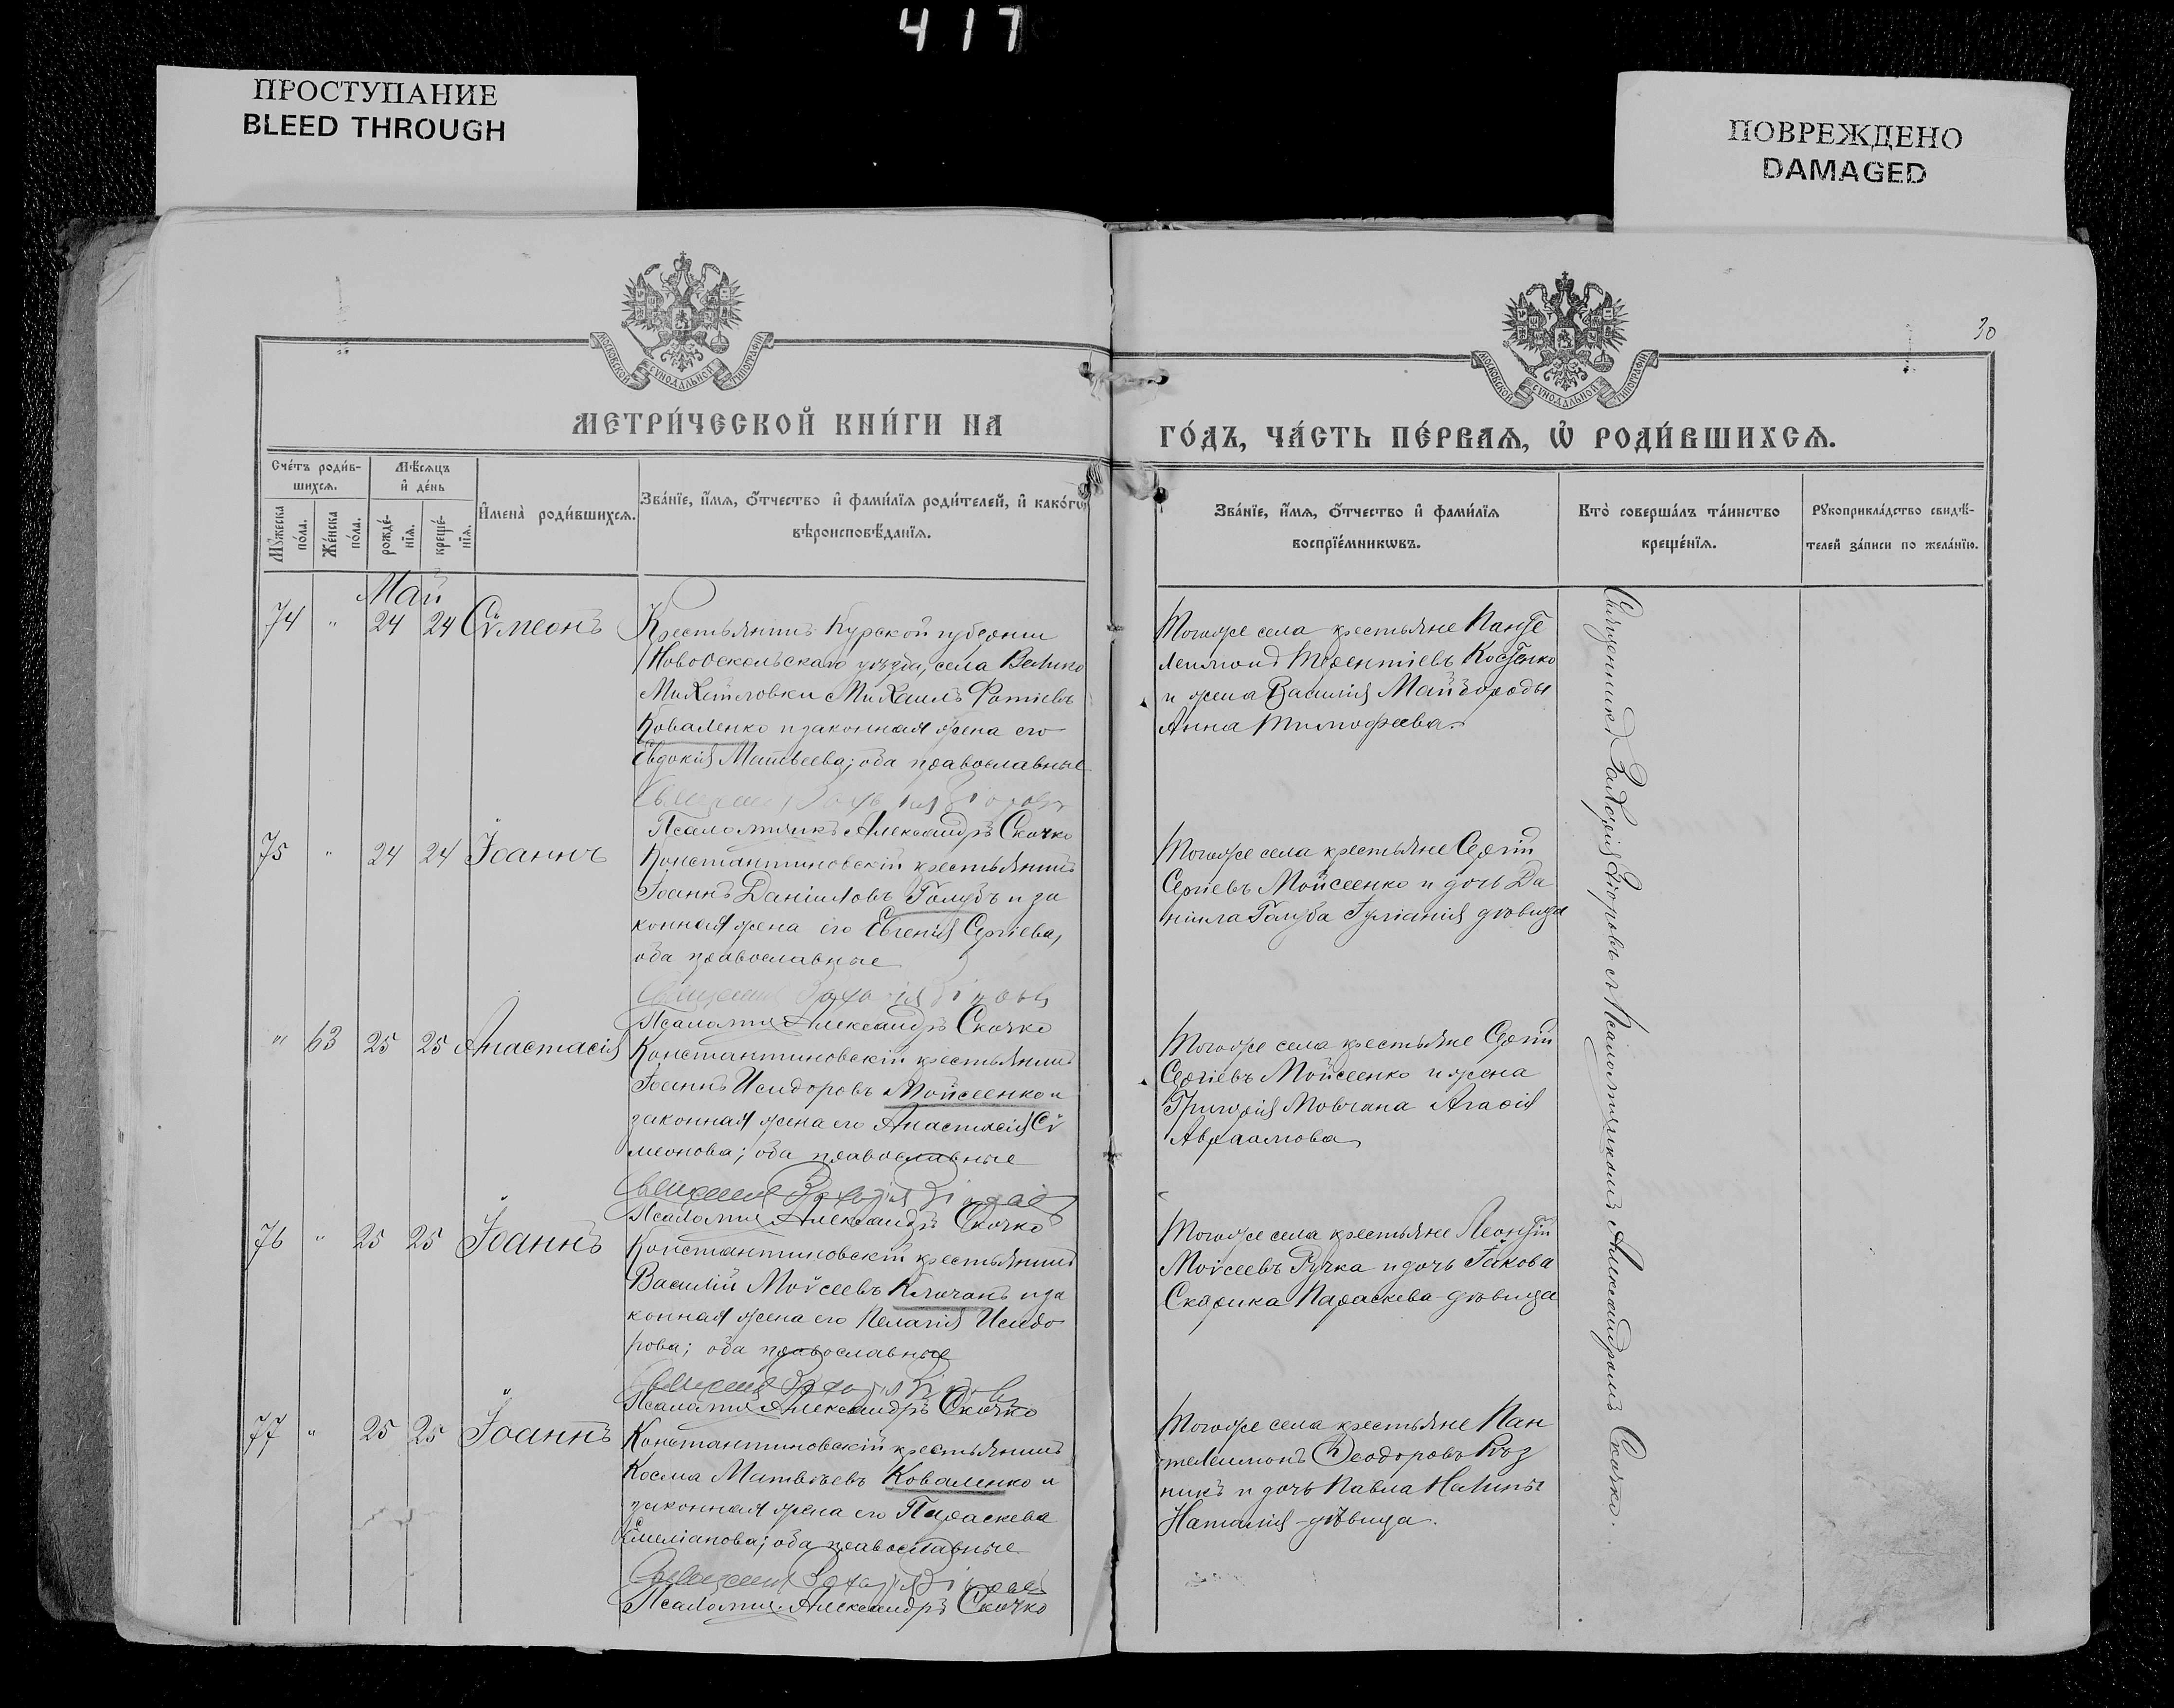 417
ПРОСТУПАНИЕ
BLEED THROUGH
ПОВРЕЖДЕНО
DAMAGED
МОСКОВСКОЙ СУНОДАЛЬНОЙ ТИПОГРАФІИ
МОСКОВСКОЙ СУНОДАЛЬНОЙ ТИПОГРАФІИ
30
МЕТРИ́ЧЕСКОЙ КНИ́ГИ НА
ГО́ДЪ, ЧА́СТЬ ПЕ́РВАѦ, Ѡ҆ РОДИ́ВШИХСѦ.
Сче́тъ роди́в-
шихсѧ.
Мѣ́сѧцъ
и҆ де́нь
Мꙋ́жеска
по́ла.
Же́нска
по́ла.
рожде́-
нїѧ.
креще́-
нїѧ.
И҆мена̀ роди́вшихсѧ.
Зва́нїе, и҆́мѧ, ѻ҆́тчество и҆ фами́лїѧ роди́телей, и҆ како́гѡ
вѣроисповѣ́данїѧ.
Зва́нїе, и҆́мѧ, ѻ҆́тчество и҆ фами́лїѧ
воспрїе́мникѡвъ.
Кто̀ соверша́лъ та́инство
креще́нїѧ.
Рꙋкоприкла́дство свидѣ́-
телей за́писи по жела́нїю.
Май
74 " 24 24 Сѵмеонъ
Крестьянинъ Курской губерніи
Новооскольскаго уѣзда, села Велико
Михайловки Михаилъ Фотіевъ
Коваленко и законная жена его
Евдокія Матвеева; оба православные
Псаломщикъ Александръ Скочко
Тогоже села крестьяне Панте
леимонъ Терентіевъ Костенко
и жена Василія Майбороды
Анна Тимофеева
75 " 24 24 Іоаннъ
Константиновскій крестьянинъ
Іоаннъ Даніиловъ Голубъ и за
конная жена его Евгенія Сергіева,
оба православные
Псаломщ. Александръ Скочко
Тогоже села крестьяне Сергій
Сергіевъ Мойсеенко и дочь Да
ніила Голуба Іуліанія дѣвица
" 63 25 25 Анастасія
Константиновскій крестьянинъ
Іоаннъ Исидоровъ Мойсеенко и
законная жена его Анастасія Сѵ
меонова; оба православные
Псаломщ. Александръ Скочко
Тогоже села крестьяне Сергій
Сергіевъ Мойсеенко и жена
Григорія Мовчана Агафія
Авраамова
76 " 25 25 Іоаннъ
Константиновскій крестьянинъ
Василій Мойсеевъ и за
конная жена его Пелагія Исидо
рова; оба православные
Псаломщ. Александръ Скочко
Тогоже села крестьяне Леонтій
Мойсеевъ Ручка и дочь Іакова
Скорика Параскева-дѣвица
77 " 25 25 Іоаннъ
Константиновскій крестьянинъ
Косма Матвѣевъ Коваленко и
законная жена его Параскева
Емеліанова; оба православные
Псаломщ. Александръ Скочко
Тогоже села крестьяне Пан
телеимонъ Ѳеодоровъ
и дочь Павла
Наталія-дѣвица.
Священникъ Захарія съ Псаломщикомъ Александромъ Скочко.